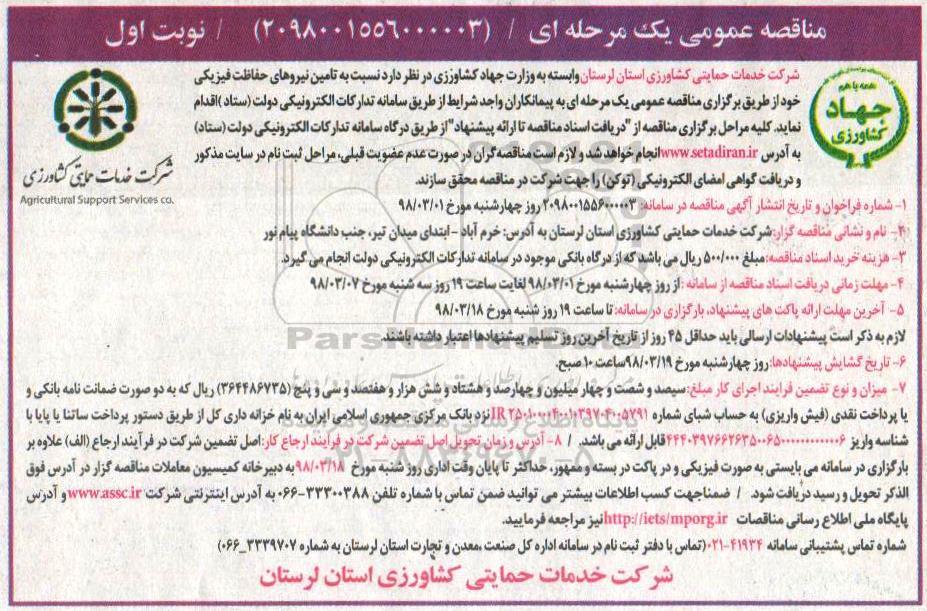 مناقصه عمومی یک مرحله ای / (۲۰۹۸۰۰۱۵۵۶۰۰۰۰۰۳) / نوبت اول
همه با هم
جهاد
کشاورزی
شرکت خدمات حمایتی کشاورزی
Agricultural Support Services co.
شرکت خدمات حمایتی کشاورزی استان لرستان وابسته به وزارت جهاد کشاورزی در نظر دارد نسبت به تامین نیروهای حفاظت فیزیکی
خود از طریق برگزاری مناقصه عمومی یک مرحله ای به پیمانکاران واجد شرایط از طریق سامانه تدارکات الکترونیکی دولت (ستاد) اقدام
نماید. کلیه مراحل برگزاری مناقصه از "دریافت اسناد مناقصه تا ارائه پیشنهاد" از طریق درگاه سامانه تدارکات الکترونیکی دولت (ستاد)
به آدرس www.setadiran.ir انجام خواهد شد و لازم است مناقصه گران در صورت عدم عضویت قبلی، مراحل ثبت نام در سایت مذکور
و دریافت گواهی امضای الکترونیکی (توکن) را جهت شرکت در مناقصه محقق سازند.
۱- شماره فراخوان و تاریخ انتشار آگهی مناقصه در سامانه: ۲۰۹۸۰۰۱۵۵۶۰۰۰۰۰۳ روز چهارشنبه مورخ ۹۸/۰۳/۰۱
۲- نام و نشانی مناقصه گزار: شرکت خدمات حمایتی کشاورزی استان لرستان به آدرس: خرم آباد - ابتدای میدان تیر، جنب دانشگاه پیام نور
۳- هزینه خرید اسناد مناقصه: مبلغ ۵۰۰/۰۰۰ ریال می باشد که از درگاه بانکی موجود در سامانه تدارکات الکترونیکی دولت انجام می گیرد.
۴- مهلت زمانی دریافت اسناد مناقصه از سامانه: از روز چهارشنبه مورخ ۹۸/۰۳/۰۱ لغایت ساعت ۱۹ روز سه شنبه مورخ ۹۸/۰۳/۰۷
۵- آخرین مهلت ارائه پاکت های پیشنهاد، بارگزاری در سامانه: تا ساعت ۱۹ روز شنبه مورخ ۹۸/۰۳/۱۸
لازم به ذکر است پیشنهادات ارسالی باید حداقل ۴۵ روز از تاریخ آخرین روز تسلیم پیشنهادها اعتبار داشته باشند.
۶- تاریخ گشایش پیشنهادها: روز چهارشنبه مورخ ۹۸/۰۳/۱۹ ساعت ۱۰ صبح.
۷- میزان و نوع تضمین فرایند اجرای کار مبلغ: سیصد و شصت و چهار میلیون و چهارصد و هشتاد و شش هزار و هفتصد و سی و پنج (۳۶۴۴۸۶۷۳۵) ریال که به دو صورت ضمانت نامه بانکی و
یا پرداخت نقدی (فیش واریزی) به حساب شبای شماره نزد بانک مرکزی جمهوری اسلامی ایران به نام خزانه داری کل از طریق دستور پرداخت ساتنا یا پایا با
شناسه واریز قابل ارائه می باشد. / ۸- آدرس و زمان تحویل اصل تضمین شرکت در فرآیند ارجاع کار: اصل تضمین شرکت در فرآیند ارجاع (الف) علاوه بر
بارگزاری در سامانه می بایستی به صورت فیزیکی و در پاکت در بسته و ممهور، حداکثر تا پایان وقت اداری روز شنبه مورخ ۹۸/۰۳/۱۸ به دبیرخانه کمیسیون معاملات مناقصه گزار در آدرس فوق
الذکر تحویل و رسید دریافت شود. / ضمنا جهت کسب اطلاعات بیشتر می توانید ضمن تماس با شماره تلفن ۰۶۶-۳۳۳۰۰۳۸۸ به آدرس اینترنتی شرکت www.assc.ir و آدرس
پایگاه ملی اطلاع رسانی مناقصات http://iets/mporg.ir نیز مراجعه فرمایید.
شماره تماس پشتیبانی سامانه ۰۲۱-۴۱۹۳۴ (تماس با دفتر ثبت نام در سامانه اداره کل صنعت ،معدن و تجارت استان لرستان به شماره ۳۳۳۹۷۰۷_۰۶۶)
شرکت خدمات حمایتی کشاورزی استان لرستان